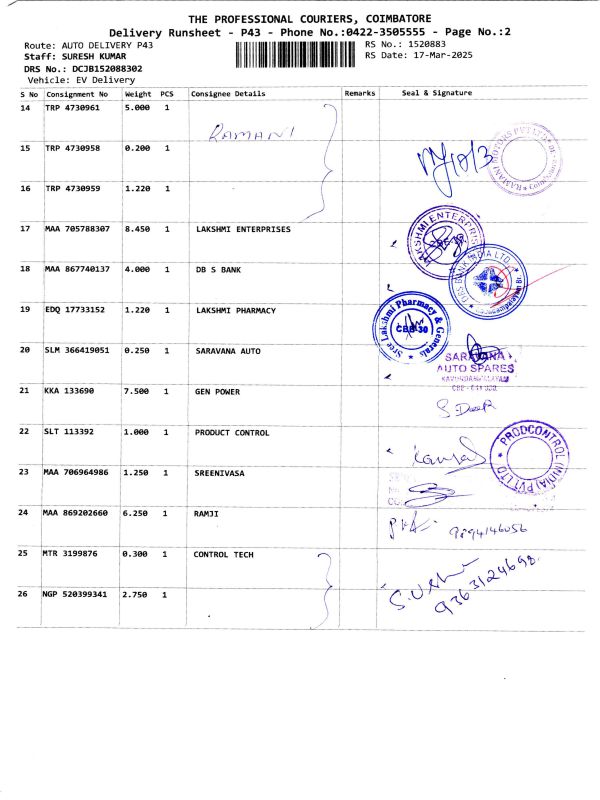 THE PROFESSIONAL COURIERS, COIMBATORE
Delivery Runsheet - P43 - Phone No.:0422-3505555 - Page No.:2
Route: AUTO DELIVERY P43 RS No.: 1520883
Staff: SURESH KUMAR RS Date: 17-Mar-2025
DRS No.: DCJB152088302
Vehicle: EV Delivery
S No Consignment No Weight PCS Consignee Details Remarks Seal & Signature
14 TRP 4730961 5.000 1
RAMANI
15 TRP 4730958 0.200 1
16 TRP 4730959 1.220 1
17 MAA 705788307 8.450 1 LAKSHMI ENTERPRISES
LAKSHMI ENTERPRISES
18 MAA 867740137 4.000 1 DB S BANK
DBS BANK INDIA LTD
19 EDQ 17733152 1.220 1 LAKSHMI PHARMACY
Sree Lakshmi Pharmacy & Generals
CBE-30
20 SLM 366419051 0.250 1 SARAVANA AUTO
SARAVANA
AUTO SPARES
21 KKA 133690 7.500 1 GEN POWER
22 SLT 113392 1.000 1 PRODUCT CONTROL
PRODCONTROL (INDIA) PVT LTD
23 MAA 706964986 1.250 1 SREENIVASA
24 MAA 869202660 6.250 1 RAMJI
9894146056
25 MTR 3199876 0.300 1 CONTROL TECH
9363124698
26 NGP 520399341 2.750 1